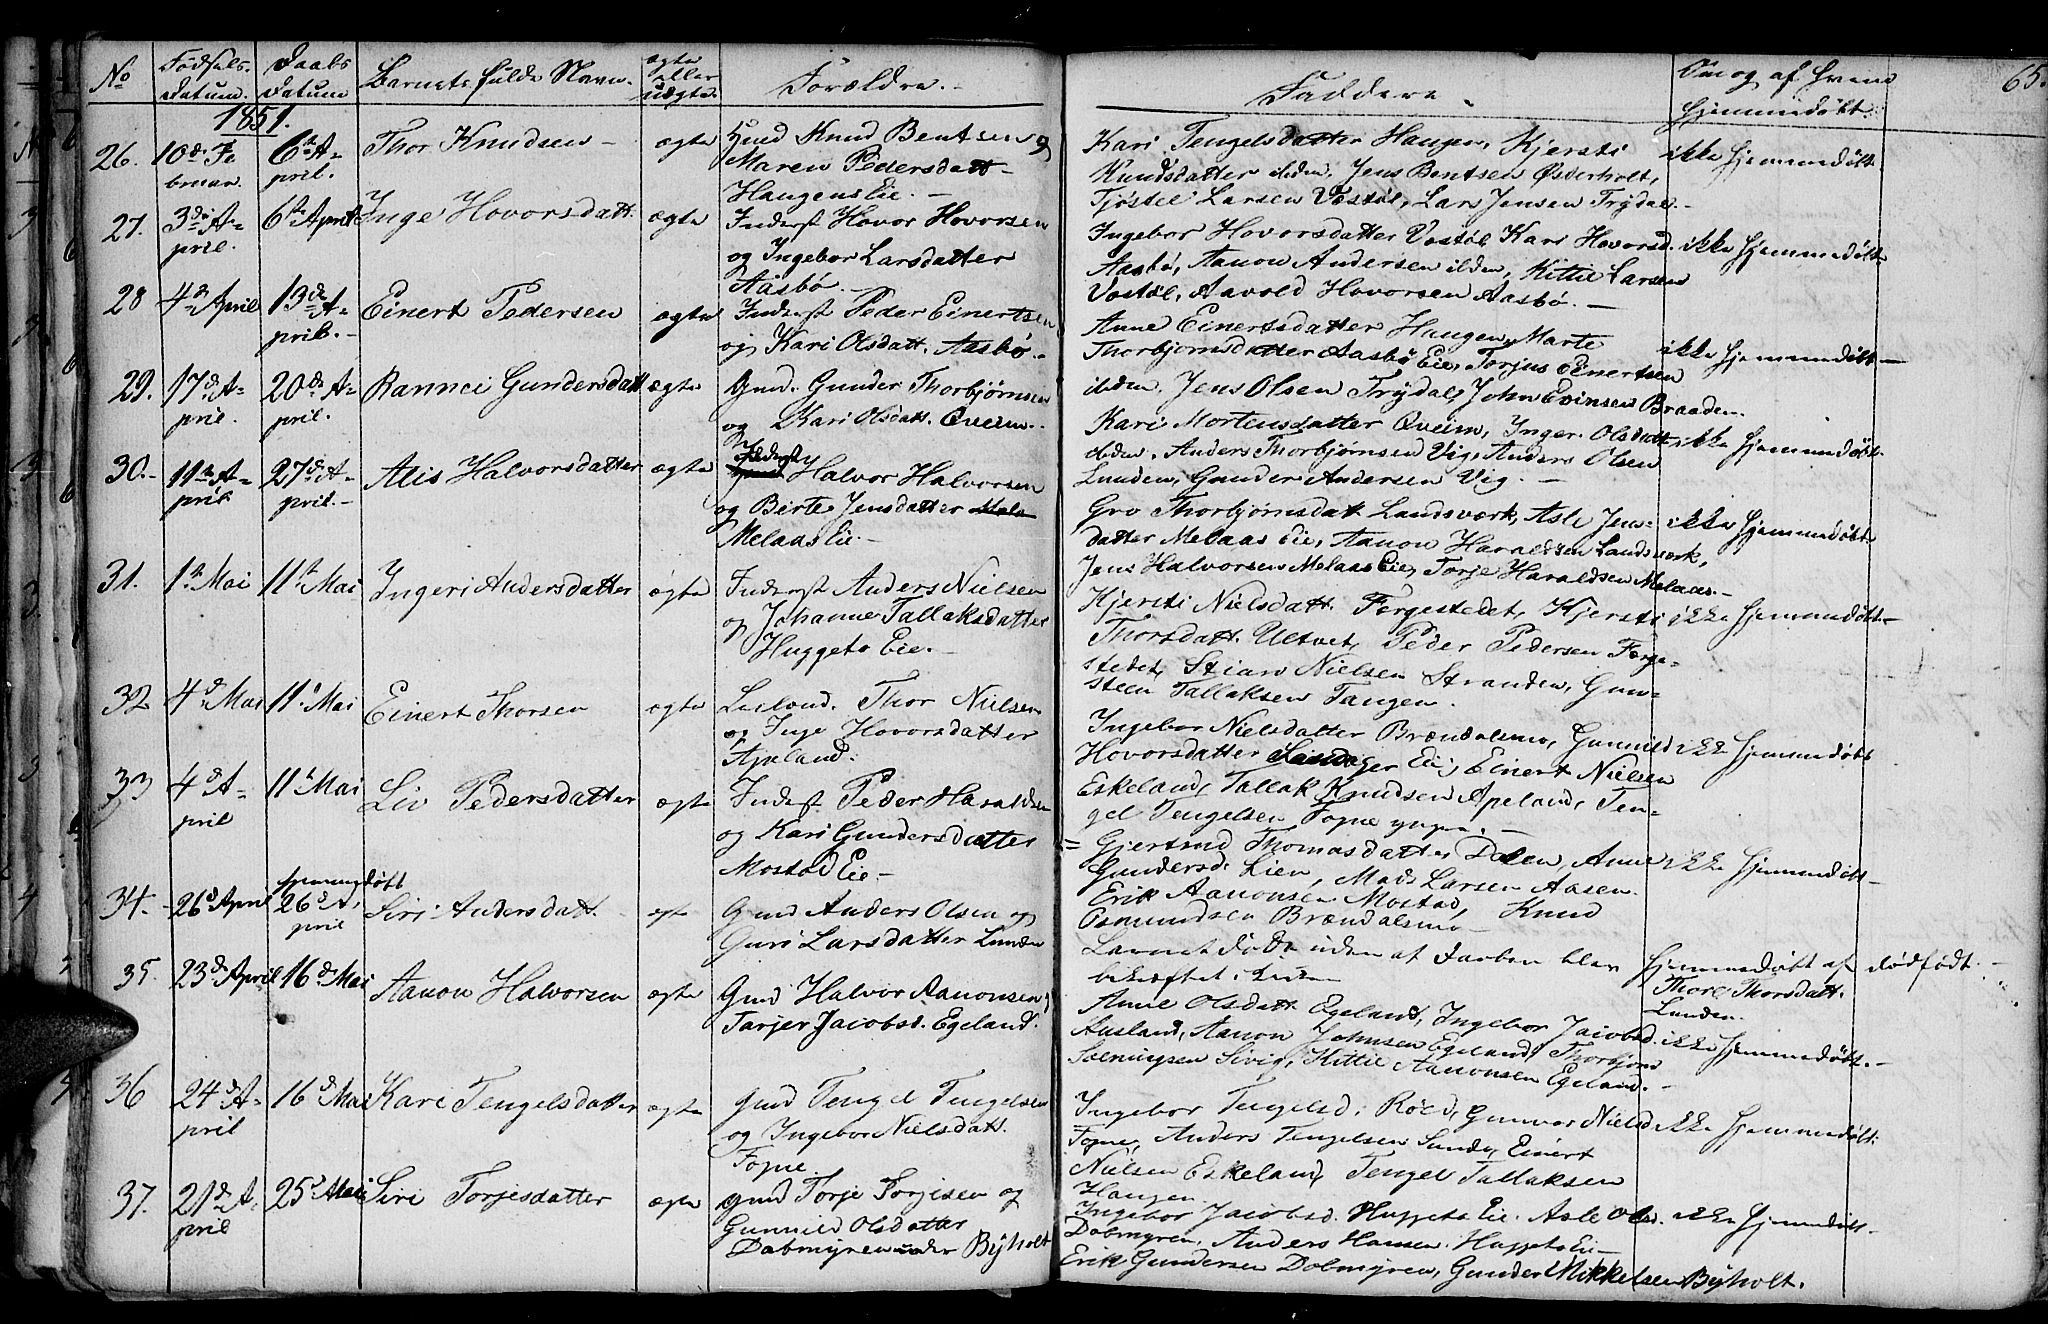 No Fødsels- datum. Daabs datum Barnets fulde Navn. ægte eller uægte Forældre.
1851.
26. 10de Fe- 6te A- Thor Knudsen ægte Gmd Knud Bentsen og
bruar. pril. Maren Pedersdatt
Haugens Eie.
27. 3die A- 6te April Inge Hovorsdatt. ægte Inderst Hovor Hovorsen
pril. og Ingebor Larsdatter
Aasbø.
28 4de April 13de A- Einert Pedersen ægte Inderst Peder Einertsen
pril. og Kari Olsdatt. Aasbø.
29. 17de A- 20de A- Rannei Gundersdatt ægte Gmd. Gunder Thorbjørnsen
pril. pril. og Kari Olsdatt. Qveim.
30. 11te A- 27de A- Alis Halvorsdatter ægte Inderst Halvor Halvorsen
pril pril. og Birte Jensdatter
Melaas Eie.
31. 1te Mai 11te Mai Ingeri Andersdatter ægte Inderst Anders Nielsen
og Johanne Tallaksdatter
Huggeto Eie.
32 4de Mai 11te Mai Einert Thorsen ægte Leiland. Thor Nielsen
og Inge Hovorsdatter
Apeland.
33 4de A- 11te Mai Liv Pedersdatter ægte Inderst Peder Haraldsen
pril og Kari Gundersdatter
Mostad Eie.
hjemmedøbt
34. 26de April 26de A- Siri Andersdatt. ægte Gmd Anders Olsen og
pril Guri Larsdatter Lunden
35. 23de April 16de Mai Aanon Halvorsen ægte Gmd Halvor Aanonsen
Tarjer Jacobsd. Egeland.
36 24de A- 16de Mai Kari Tengelsdatter ægte Gmd Tengel Tengelsen
pril og Ingebor Nielsdatt.
Fopne.
37. 21de A- 25de Mai Siri Torjesdatter ægte gmd Torje Torjesen og
pril Gunnild Olsdatter
Dabmyren under Byholt
Faddere. Om og af hvem hjemmedøbt. 65.
Kari Tengelsdatter Haugen, Kjersti ikke hjemmedøbt
Knudsdatter ibden, Jens Bentsen Østerholt,
Tjøstel Larsen Vostøl, Lars Jensen Trydal.
Ingebor Hovorsdatter Vostøl, Kari Hovorsd. ikke hjemmedøbt
Aasbø, Aanon Andersen ibden, Kittil Larsen
Vostøl, Aavold Hovorsen Aasbø.
Anne Einertsdatter Haugen, Marte ikke hjemmedøbt
Thorbjørnsdatter Aasbø Eie, Torjus Einertsen
ibden, Jens Olsen Trydal, John Evinsen Braaden.
Kari Mortensdatter Qveim, Inger Olsdatt. ikke hjemmedøbt.
ibden, Anders Thorbjørnsen Vig, Anders Olsen
Lunden, Gunder Andersen Vig.
Gro Thorbjørnsdatt Landsværk, Asle Jens- ikke hjemmedøbt.
datter Melaas Eie, Aanon Haraldsen Landsværk,
Jens Halvorsen Melaas Eie, Torje Haraldsen Melaas.
Kjersti Nielsdatt. Forgestedet, Kjersti ikke hjemmedøbt.
Thorsdatt. Ultvet, Peder Pedersen Forge-
stedet, Stian Nielsen Stranden, Gun-
steen Tallaksen Tangen.
Ingebor Nielsdatter Brændalsmo, Gunnild ikke hjemmedøbt
Hovorsdatter Eie, Einert Nielsen
Eskeland, Tallak Knudsen Apeland, Ten-
gel Tengelsen Fopne yngre.
Gjertrud Thomasdatter Dalen, Anne ikke hjemmedøbt
Gundersd. Lien, Mads Larsen Aasen.
Erik Aanonsen Mostad, Knud
Osmundsen Brændalsmo
Barnet døde uden at Daaben blev hjemmedøbt af dødfødt.
bekræftet i Kirken Thore Thorsdatt.
Lunden.
Anne Olsdatt. Egeland, Ingebor Jacobsd. ikke hjemmedøbt.
Ausland, Aanon Johnsen Egeland, Thorbjørn
Solmunsen Sivig, Kittil Aanonsen Egeland.
Ingebor Tengelsd. Røed, Gunvor Nielsd ikke hjemmedøbt.
Fopne, Anders Tengelsen Sunde, Einert
Nielsen Eskeland, Tengel Tallaksen
Haugen.
Ingebor Jacobsd. Huggeto Eie. Asle Olsd. ikke hjemmedøbt.
Dabmyren, Anders Hansen Huggeto Eie
Erik Gundersen Dabmyren, Gunder Mikkelsen Byholt.